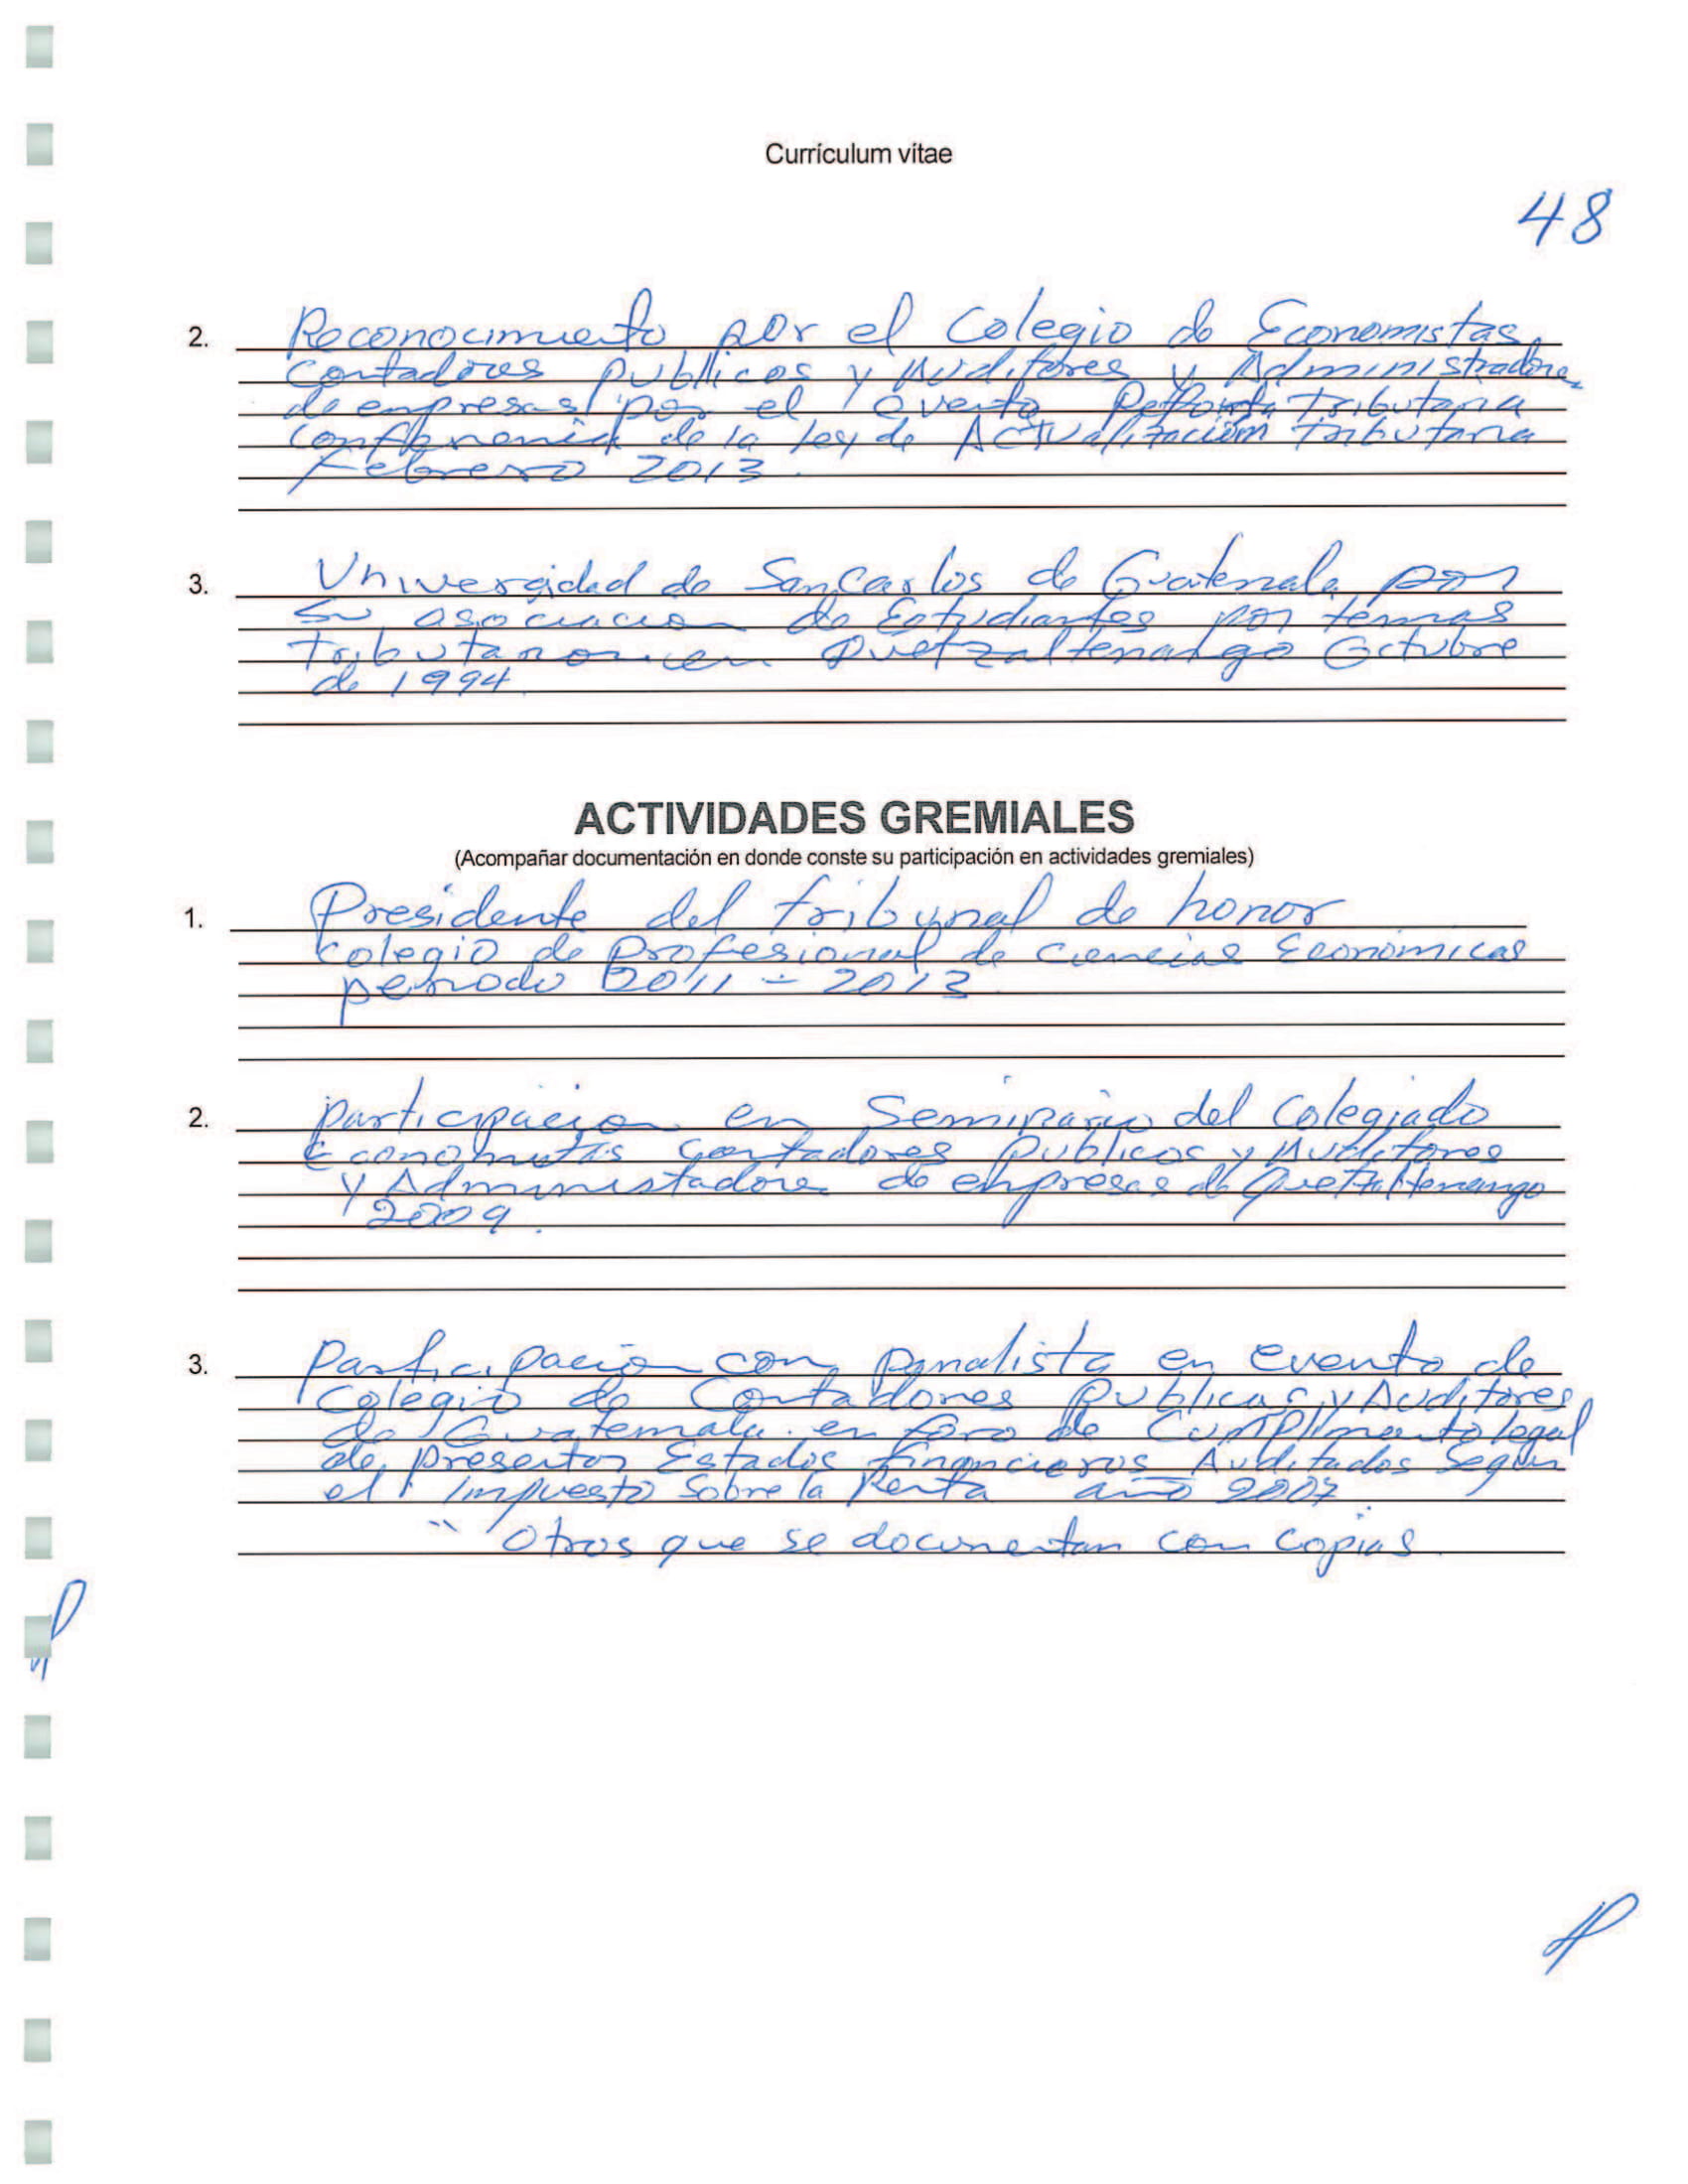 Currículum vítae
48
2. Reconocimiento por el Colegio de Economistas,
Contadores publicos y Auditores y Administradores
de empresas por el evento Reforma Tributaria
de la ley de Actualización tributaria
Febrero 2013.
3. Universidad de San Carlos de Guatemala por
su asociacion de Estudiantes por temas
Tributario en Quetzaltenango Octubre
de 1994.
ACTIVIDADES GREMIALES
(Acompañar documentación en donde conste su participación en actividades gremiales)
1. Presidente del tribunal de honor
colegio de Profesional de ciencias Económicas
periodo 2011 - 2013
2. participacion en Seminario del Colegiado
Economistas Contadores Publicos y Auditores
y Administadores de empresas de Quetzaltenango
2009.
3. Participación con panalista en evento de
Colegio de Contadores Publicos y Auditores
de Guatemala en foro de Cumplimento legal
de presentar Estados financieros Auditados Según
el Impuesto Sobre la Renta año 2007.
" Otros que se documentan con copias.